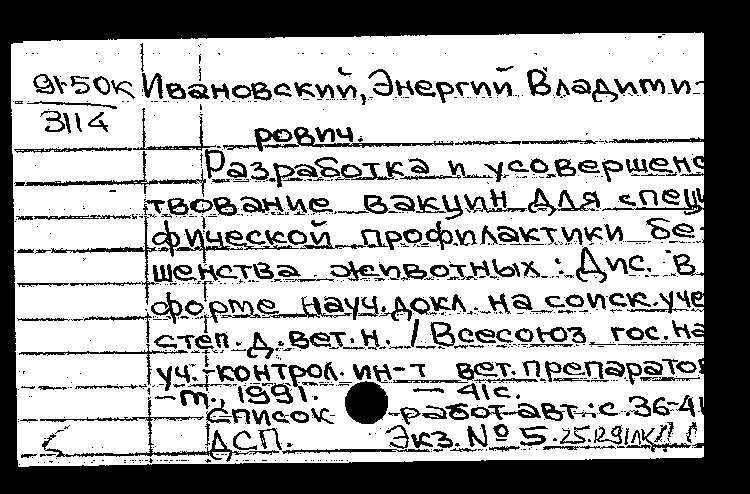 91-50к Ивановский, Энергий Владими-
3114
рович.
Разработка и усовершенс
твование вакцин для специ
фической профилактики бе-
шенства животных : Дис. в
форме науч. докл. на соиск. уче
степ. д. вет. н. / Всесоюз. гос. на
уч.-контрол. ин-т вет. препарато
- М., 1991. — 41с.
Список работ авт.: с. 36-41
ДСП. Экз. № 5